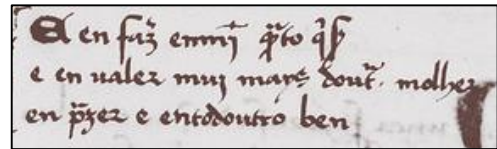 E en faz̃ enmĩ q̃to q̃s̃
e en ualer mui mays dout̃. molher
en p̃zer e entodoutro ben